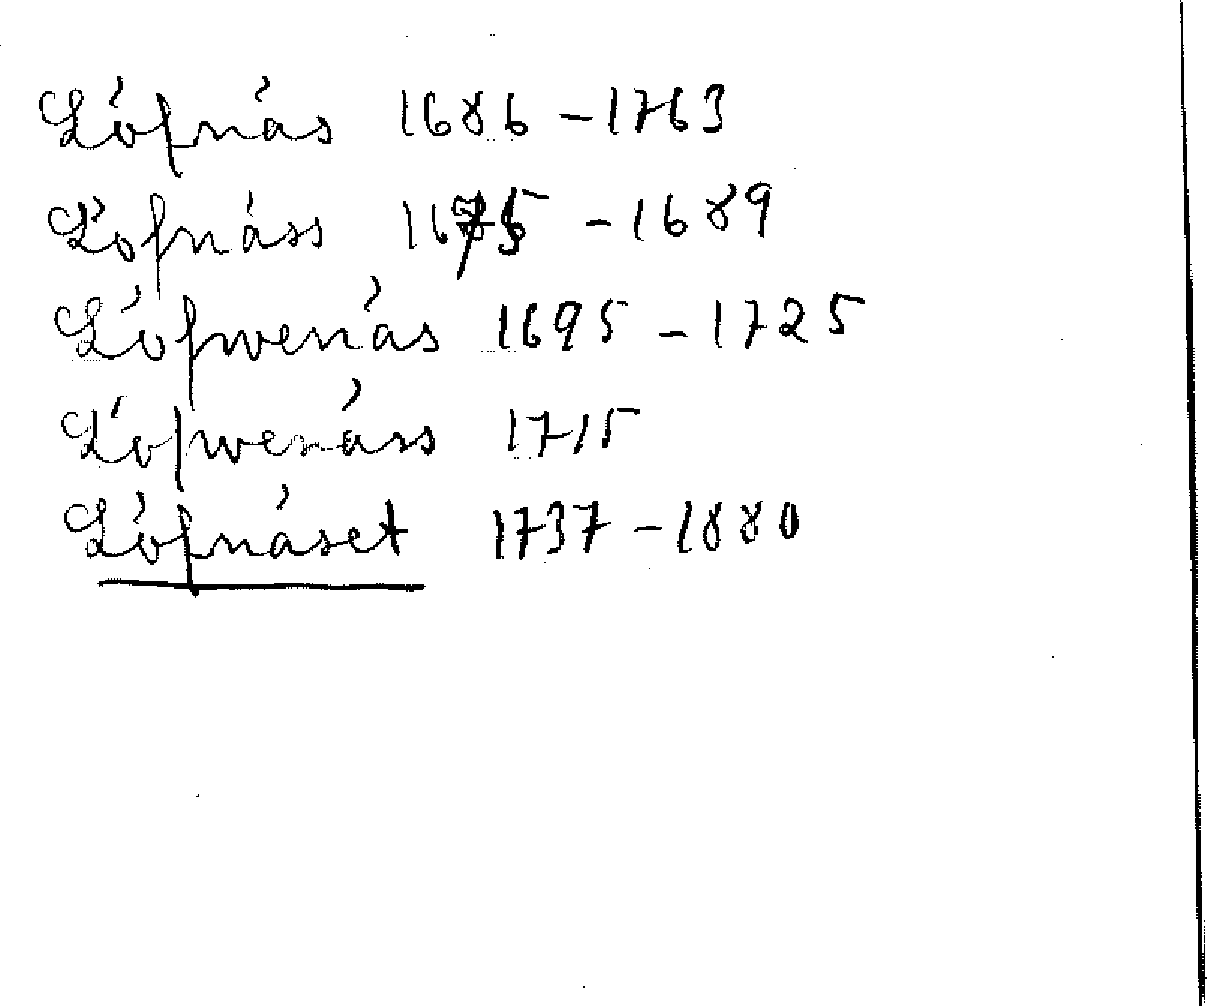 Lófnás 1686 – 1763
Lófnáss 1675 – 1689
Lófwenás 1695 – 1725
Lófwenáss 1715
Lófnáset 1737 – 1880